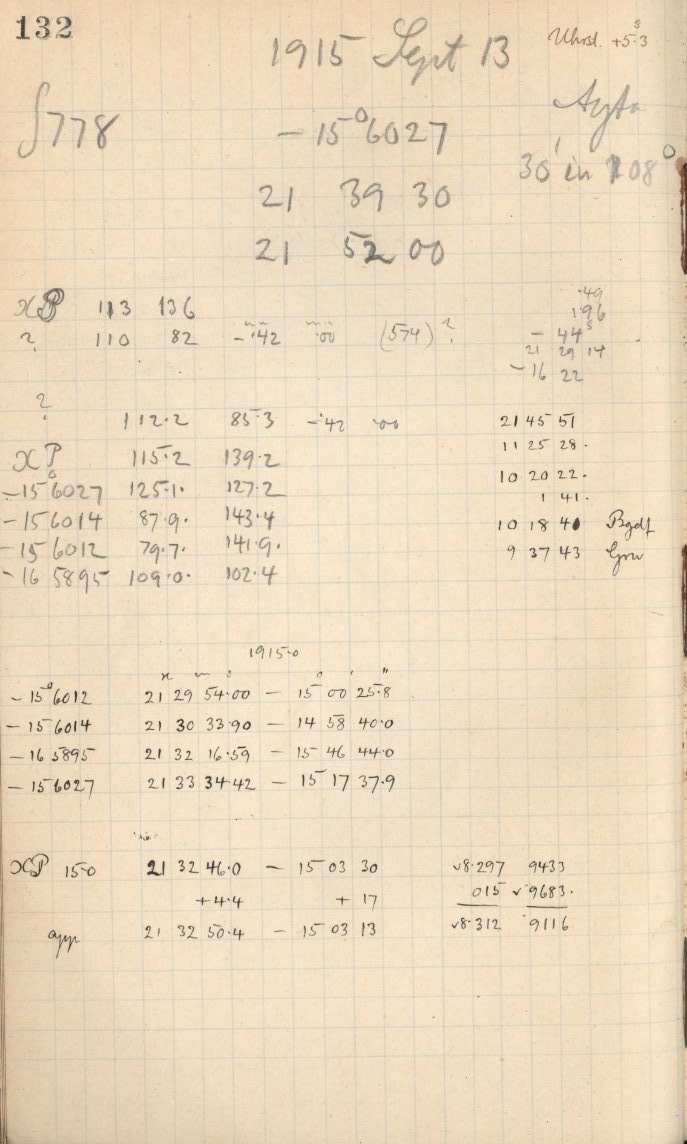 132
1915 Sept 13
Uhrst. +5.3 s
∫778
-15° 6027
Agfa
30' in 108°
21 39 30
21 52 00
XP 113 136
.49
? 110 82 -.42 .00 (574)?
196
- 44 s
21 29 14
-16 22
? 112.2 85.3 -.42 .00
21 45 51
XP 115.2 139.2
11 25 28.
-15° 6027 125.1. 127.2
10 20 22.
1 41.
-15 6014 87.9. 143.4
10 18 41 Bgdf
-15 6012 79.7. 141.9.
9 37 43 Grw
-16 5895 109.0. 102.4
1915.0
h m s ° ' "
-15° 6012 21 29 54.00 - 15 00 25.8
-15 6014 21 30 33.90 - 14 58 40.0
-16 5895 21 32 16.59 - 15 46 44.0
-15 6027 21 33 34.42 - 15 17 37.9
XP 15.0 21 32 46.0 - 15 03 30 √8.297 9433
+4.4 + 17 015 √9683.
app 21 32 50.4 - 15 03 13 √8.312 9116